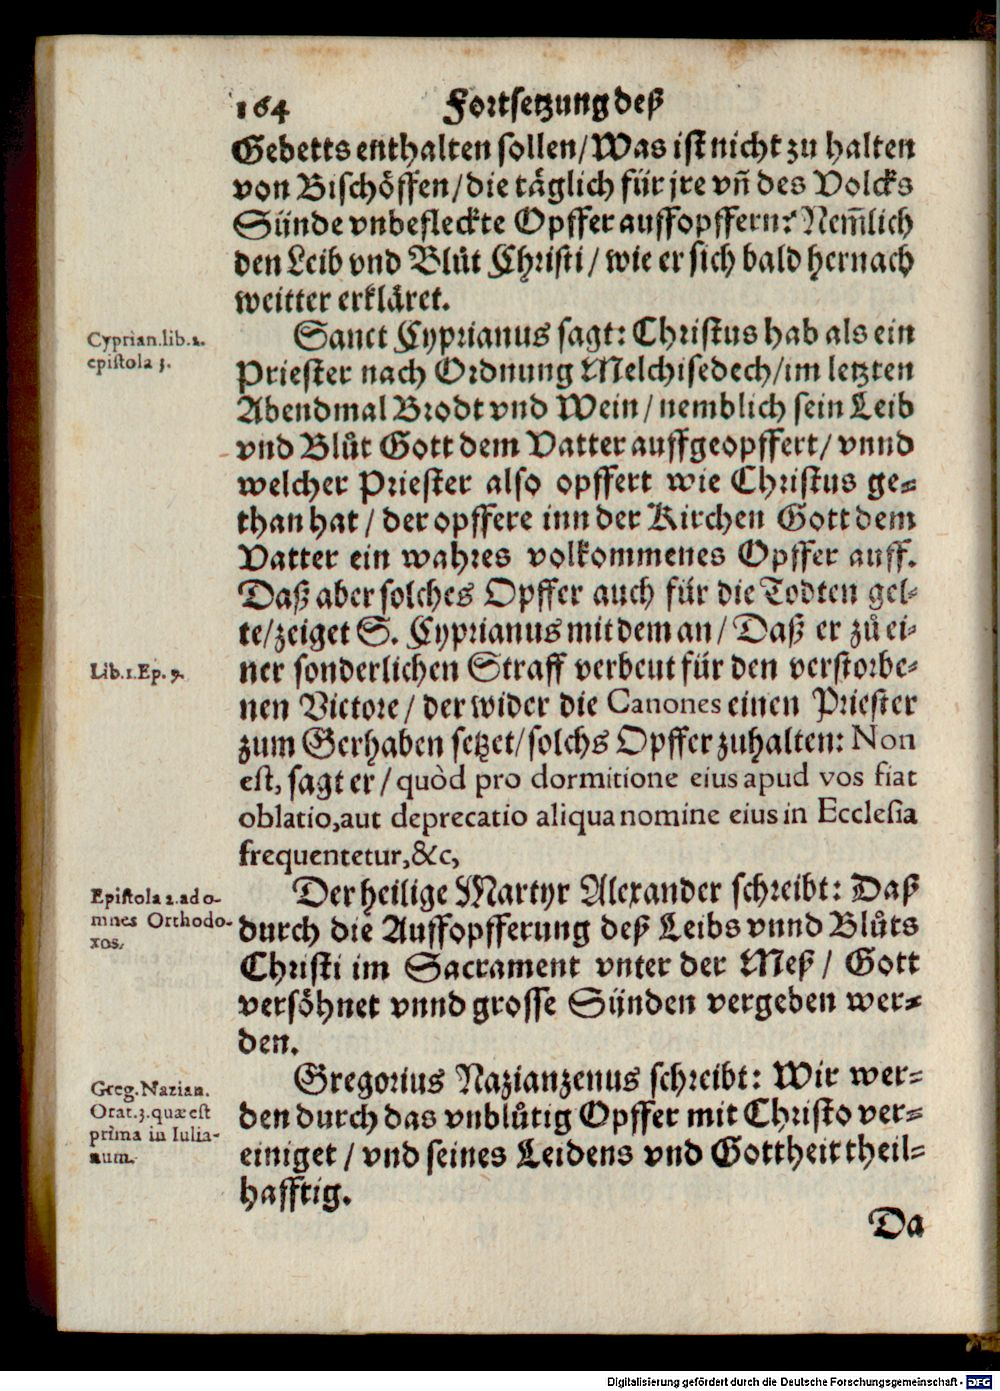 164 Fortsetzung deß
Gebetts enthalten sollen/Was ist nicht zu halten
von Bischöffen/die täglich für jre vñ des Volcks
Sünde vnbefleckte Opffer auffopffern? Nem̃lich
den Leib vnd Blůt Christi/wie er sich bald hernach
weitter erkläret.
Cyprian.lib.2.
epistola 3.
Sanct Cyprianus sagt: Christus hab als ein
Priester nach Ordnung Melchisedech/im letzten
Abendmal Brodt vnd Wein/nemblich sein Leib
vnd Blůt Gott dem Vatter auffgeopffert/vnnd
welcher Priester also opffert wie Christus ge-
than hat/der opffere inn der Kirchen Gott dem
Vatter ein wahres volkommenes Opffer auff.
Daß aber solches Opffer auch für die Todten gel-
te/zeiget S. Cyprianus mit dem an/Daß er zů ei-
Lib.1.Ep. 9.
ner sonderlichen Straff verbeut für den verstorbe-
nen Victore/der wider die Canones einen Priester
zum Gerhaben setzet/solchs Opffer zuhalten: Non
est, sagt er/quòd pro dormitione eius apud vos fiat
oblatio,aut deprecatio aliqua nomine eius in Ecclesia
frequentetur,&c,
Epistola 1.ad o-
mnes Orthodo-
xos.
Der heilige Martyr Alexander schreibt: Daß
durch die Auffopfferung deß Leibs vnnd Blůts
Christi im Sacrament vnter der Meß/Gott
versöhnet vnnd grosse Sünden vergeben wer-
den.
Greg.Nazian.
Orat.3.quæ est
prima in Iulia-
num.
Gregorius Nazianzenus schreibt: Wir wer-
den durch das vnblůtig Opffer mit Christo ver-
einiget/vnd seines Leidens vnd Gottheit theil-
hafftig.
Da
Digitalisierung gefördert durch die Deutsche Forschungsgemeinschaft - DFG